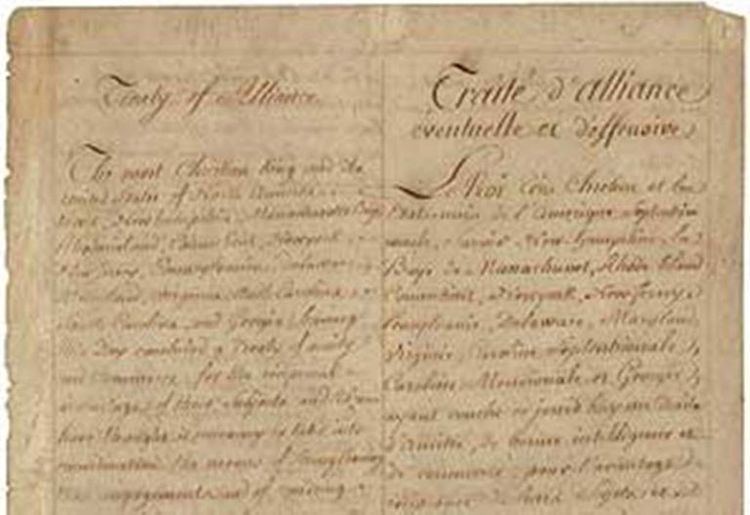 Treaty of Alliance
The most Christian King and the
United States of North America
Hampshire, Massachusetts Bay
Rhodeisland, Connecticut, Newyork
New Jersey, Pennsylvania, Delaware
Maryland, Virginia, North Carolina
South Carolina, and Georgia, having
this Day concluded a Treaty of amity
and Commerce, for the reciprocal
advantage of their Subjects and
have thought it necessary to take into
consideration the means of strengthening
those engagements and of
Traité d'alliance
éventuelle et deffensive
Le Roi très Chretien et les
Etats unis de l'Amerique Septentrio
nale, New hampshire, la
Baye de Massachuset, Rhode island
Connecticut, Newyork, New Jersey
Pensylvanie, Delaware, Maryland
Virginie, Caroline Septentrionale,
Caroline Meridionale et Georgie,
ayant conclu ce jourd'huy un Traité
d'amitié, de bonne intelligence et
de commerce, pour l'avantage
reciproque de leurs Sujets